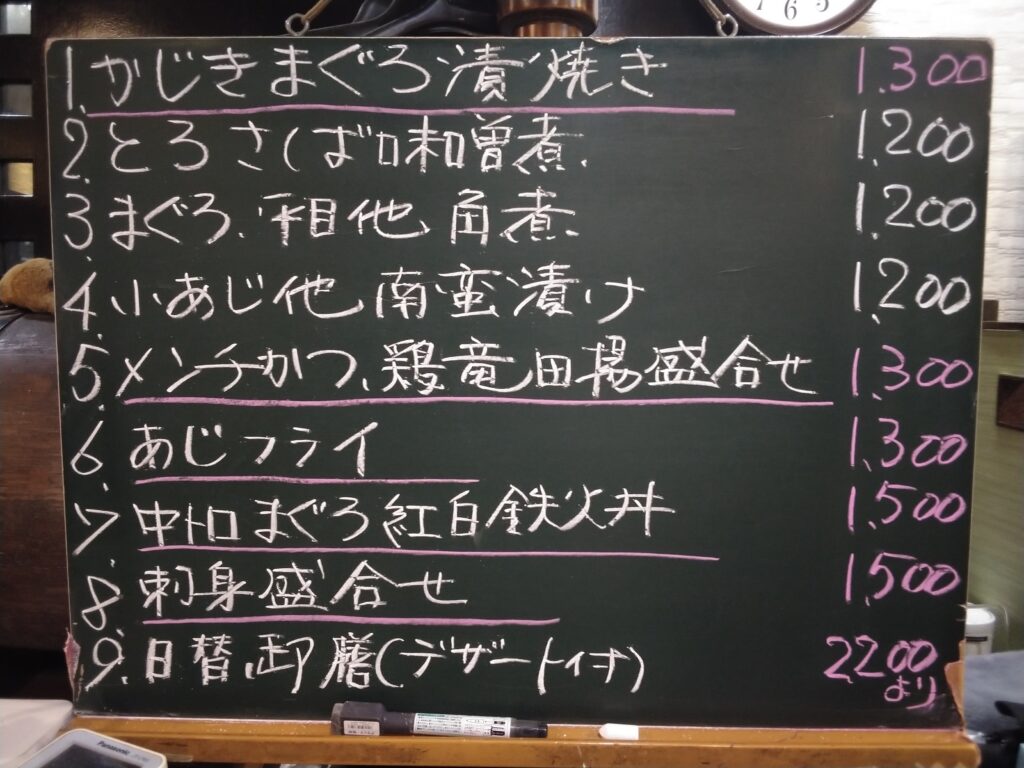 6 5
1. かじきまぐろ漬焼き 1,300
2. とろさば味噌煮 1,200
3. まぐろ、平目他、角煮 1,200
4. 小あじ他、南蛮漬け 1,200
5 メンチかつ、鶏竜田揚盛合せ 1,300
6. あじフライ 1,300
7. 中トロまぐろ紅白鉄火丼 1,500
8. 刺身盛合せ 1,500
9. 日替御膳(デザート付) 2,200
より
Panasonic